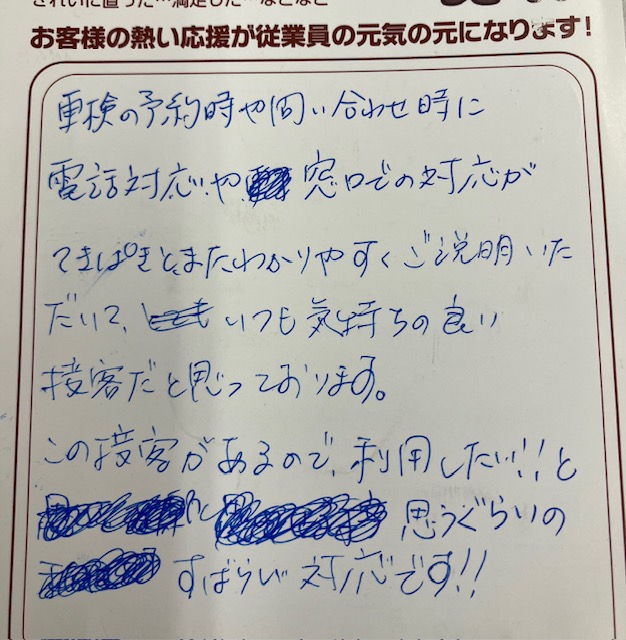 きれいに直った…満足した…などなど
お客様の熱い応援が従業員の元気の元になります!
車検の予約時や問い合わせ時に
電話対応や窓口での対応が
てきぱきと、またわかりやすくご説明いた
だいて、いつも気持ちの良い
接客だと思っております。
この接客があるので、利用したい!!と
思うぐらいの
すばらしい対応です!!